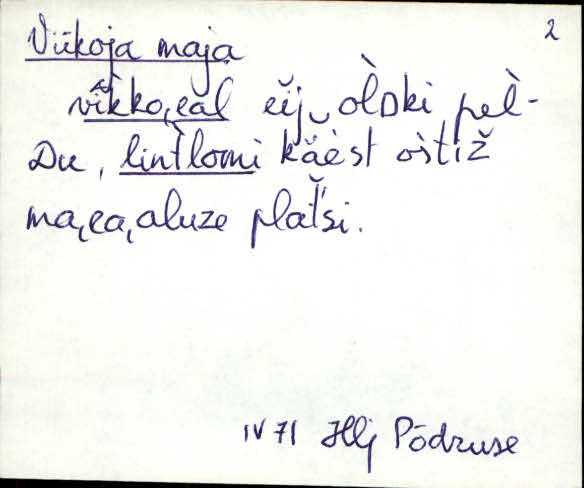 2
Viikoja maja
vi̮kko,eal eij‿olD̀ki pel̀-
Du, linǹtlomi käest ostiž
ma,ea,aluze plat̆'si.
IV 71 Hlj Põdruse